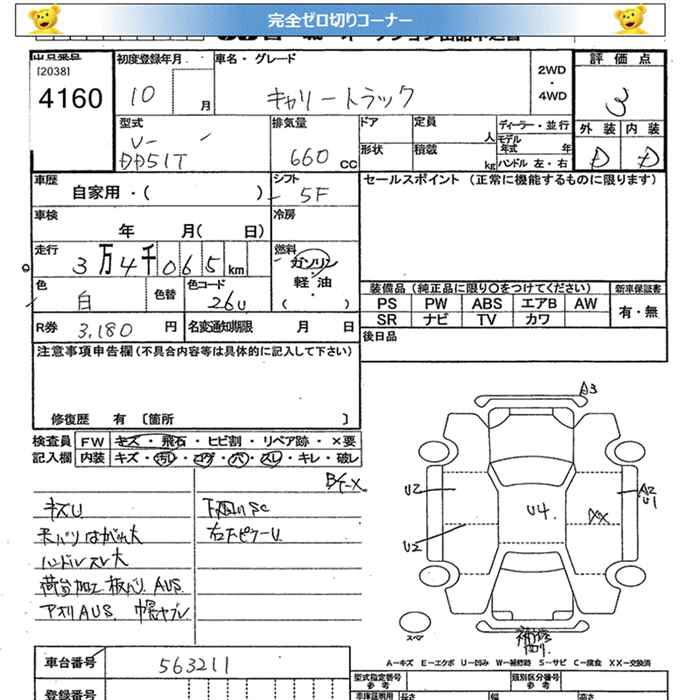 完全ゼロ切りコーナー
出品番号
[2038]
4160
初度登録年月
10 月
車名・グレード
キャリートラック
2WD
・
4WD
評価点
3
外装 内装
D D
型式
V-
DD51T
排気量
660 CC
ドア
定員
人
形状
積載
kg
ディーラー・並行
モデル
年式 年
ハンドル 左・右
車歴
自家用・( )
シフト
5F
セールスポイント (正常に機能するものに限ります)
車検
年 月( 日)
冷房
走行
3万4千065km
燃料
ガソリン・
軽油・
( )
色
白
色替
色コード
26U
装備品(純正品に限り〇をつけてください)
新車保証書
PS PW ABS エアB AW
SR ナビ TV カワ
有・無
R券 3,180 円
名変通知期限 月 日
後日品
注意事項申告欄(不具合内容等は具体的に記入して下さい)
修復歴 有 〔箇所 〕
検査員
記入欄
FW キズ・飛石・ヒビ割・リペア跡・×要
内装 キズ・汚れ・コゲ・穴・スレ・キレ・破レ
キズU
下回りSC
天バリはがれ大
ハンドルスレ大
荷台加工 板バリ AUS
アオリAUS 幌ヤブレ
A3
U2
U2
U4
XX
A2
U1
スペア
補修
A-キズ E-エクボ U-凹み W-補修跡 S-サビ C-腐食 XX-交換済
車台番号
563211
登録番号
型式指定番号
参考
類別区分番号
参考
車庫証明用
長さ
幅
高さ